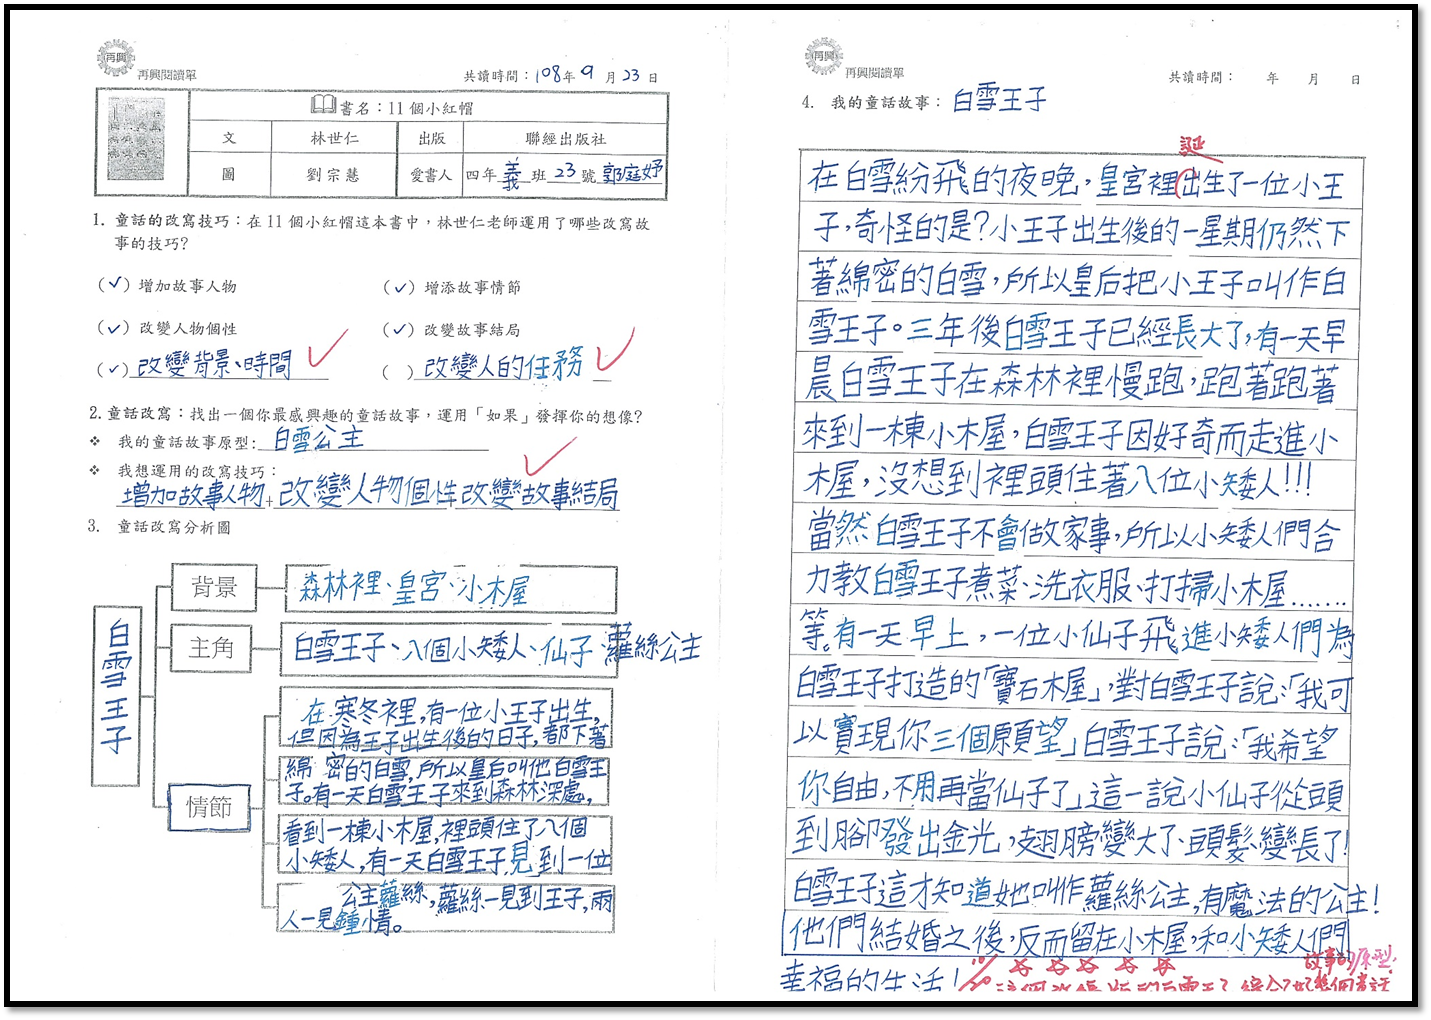 再興
再興閱讀單
共讀時間：108年9月23日
書名：11個小紅帽
文 林世仁 出版 聯經出版社
圖 劉宗慧 愛書人 四年義班23號郭庭妤
1. 童話的改寫技巧：在11個小紅帽這本書中，林世仁老師運用了哪些改寫故
事的技巧？
(✓) 增加故事人物 (✓) 增添故事情節
(✓) 改變人物個性 (✓) 改變故事結局
(✓) 改變背景、時間 ( ) 改變人的任務
2. 童話改寫：找出一個你最感興趣的童話故事，運用「如果」發揮你的想像？
❖ 我的童話故事原型: 白雪公主
❖ 我想運用的改寫技巧：
增加故事人物+改變人物個性 改變故事結局
3. 童話改寫分析圖
白雪王子
背景 森林裡、皇宮、小木屋
主角 白雪王子、八個小矮人、仙子、蘿絲公主
情節
在寒冬裡，有一位小王子出生，
但因為王子出生後的日子，都下著
綿密的白雪，所以皇后叫他白雪王
子。有一天白雪王子來到森林深處，
看到一棟小木屋，裡頭住了八個
小矮人，有一天白雪王子見到一位
公主蘿絲，蘿絲一見到王子，兩
人一見鍾情。
再興
再興閱讀單
共讀時間： 年 月 日
4. 我的童話故事：白雪王子
誕
在白雪紛飛的夜晚，皇宮裡出生了一位小王
子，奇怪的是？小王子出生後的一星期仍然下
著綿密的白雪，所以皇后把小王子叫作白
雪王子。三年後白雪王子已經長大了，有一天早
晨白雪王子在森林裡慢跑，跑著跑著
來到一棟小木屋，白雪王子因好奇而走進小
木屋，沒想到裡頭住著八位小矮人!!!
當然白雪王子不會做家事，所以小矮人們合
力教白雪王子煮菜、洗衣服、打掃小木屋……
等。有一天早上，一位小仙子飛進小矮人們為
白雪王子打造的「寶石木屋」，對白雪王子說：「我可
以實現你三個願望」白雪王子說：「我希望
你自由，不用再當仙子了」這一說小仙子從頭
到腳發出金光，翅膀變大了、頭髮變長了!
白雪王子這才知道她叫作蘿絲公主，有魔法的公主!
他們結婚之後，反而留在小木屋，和小矮人們
幸福的生活!
故事的原型.